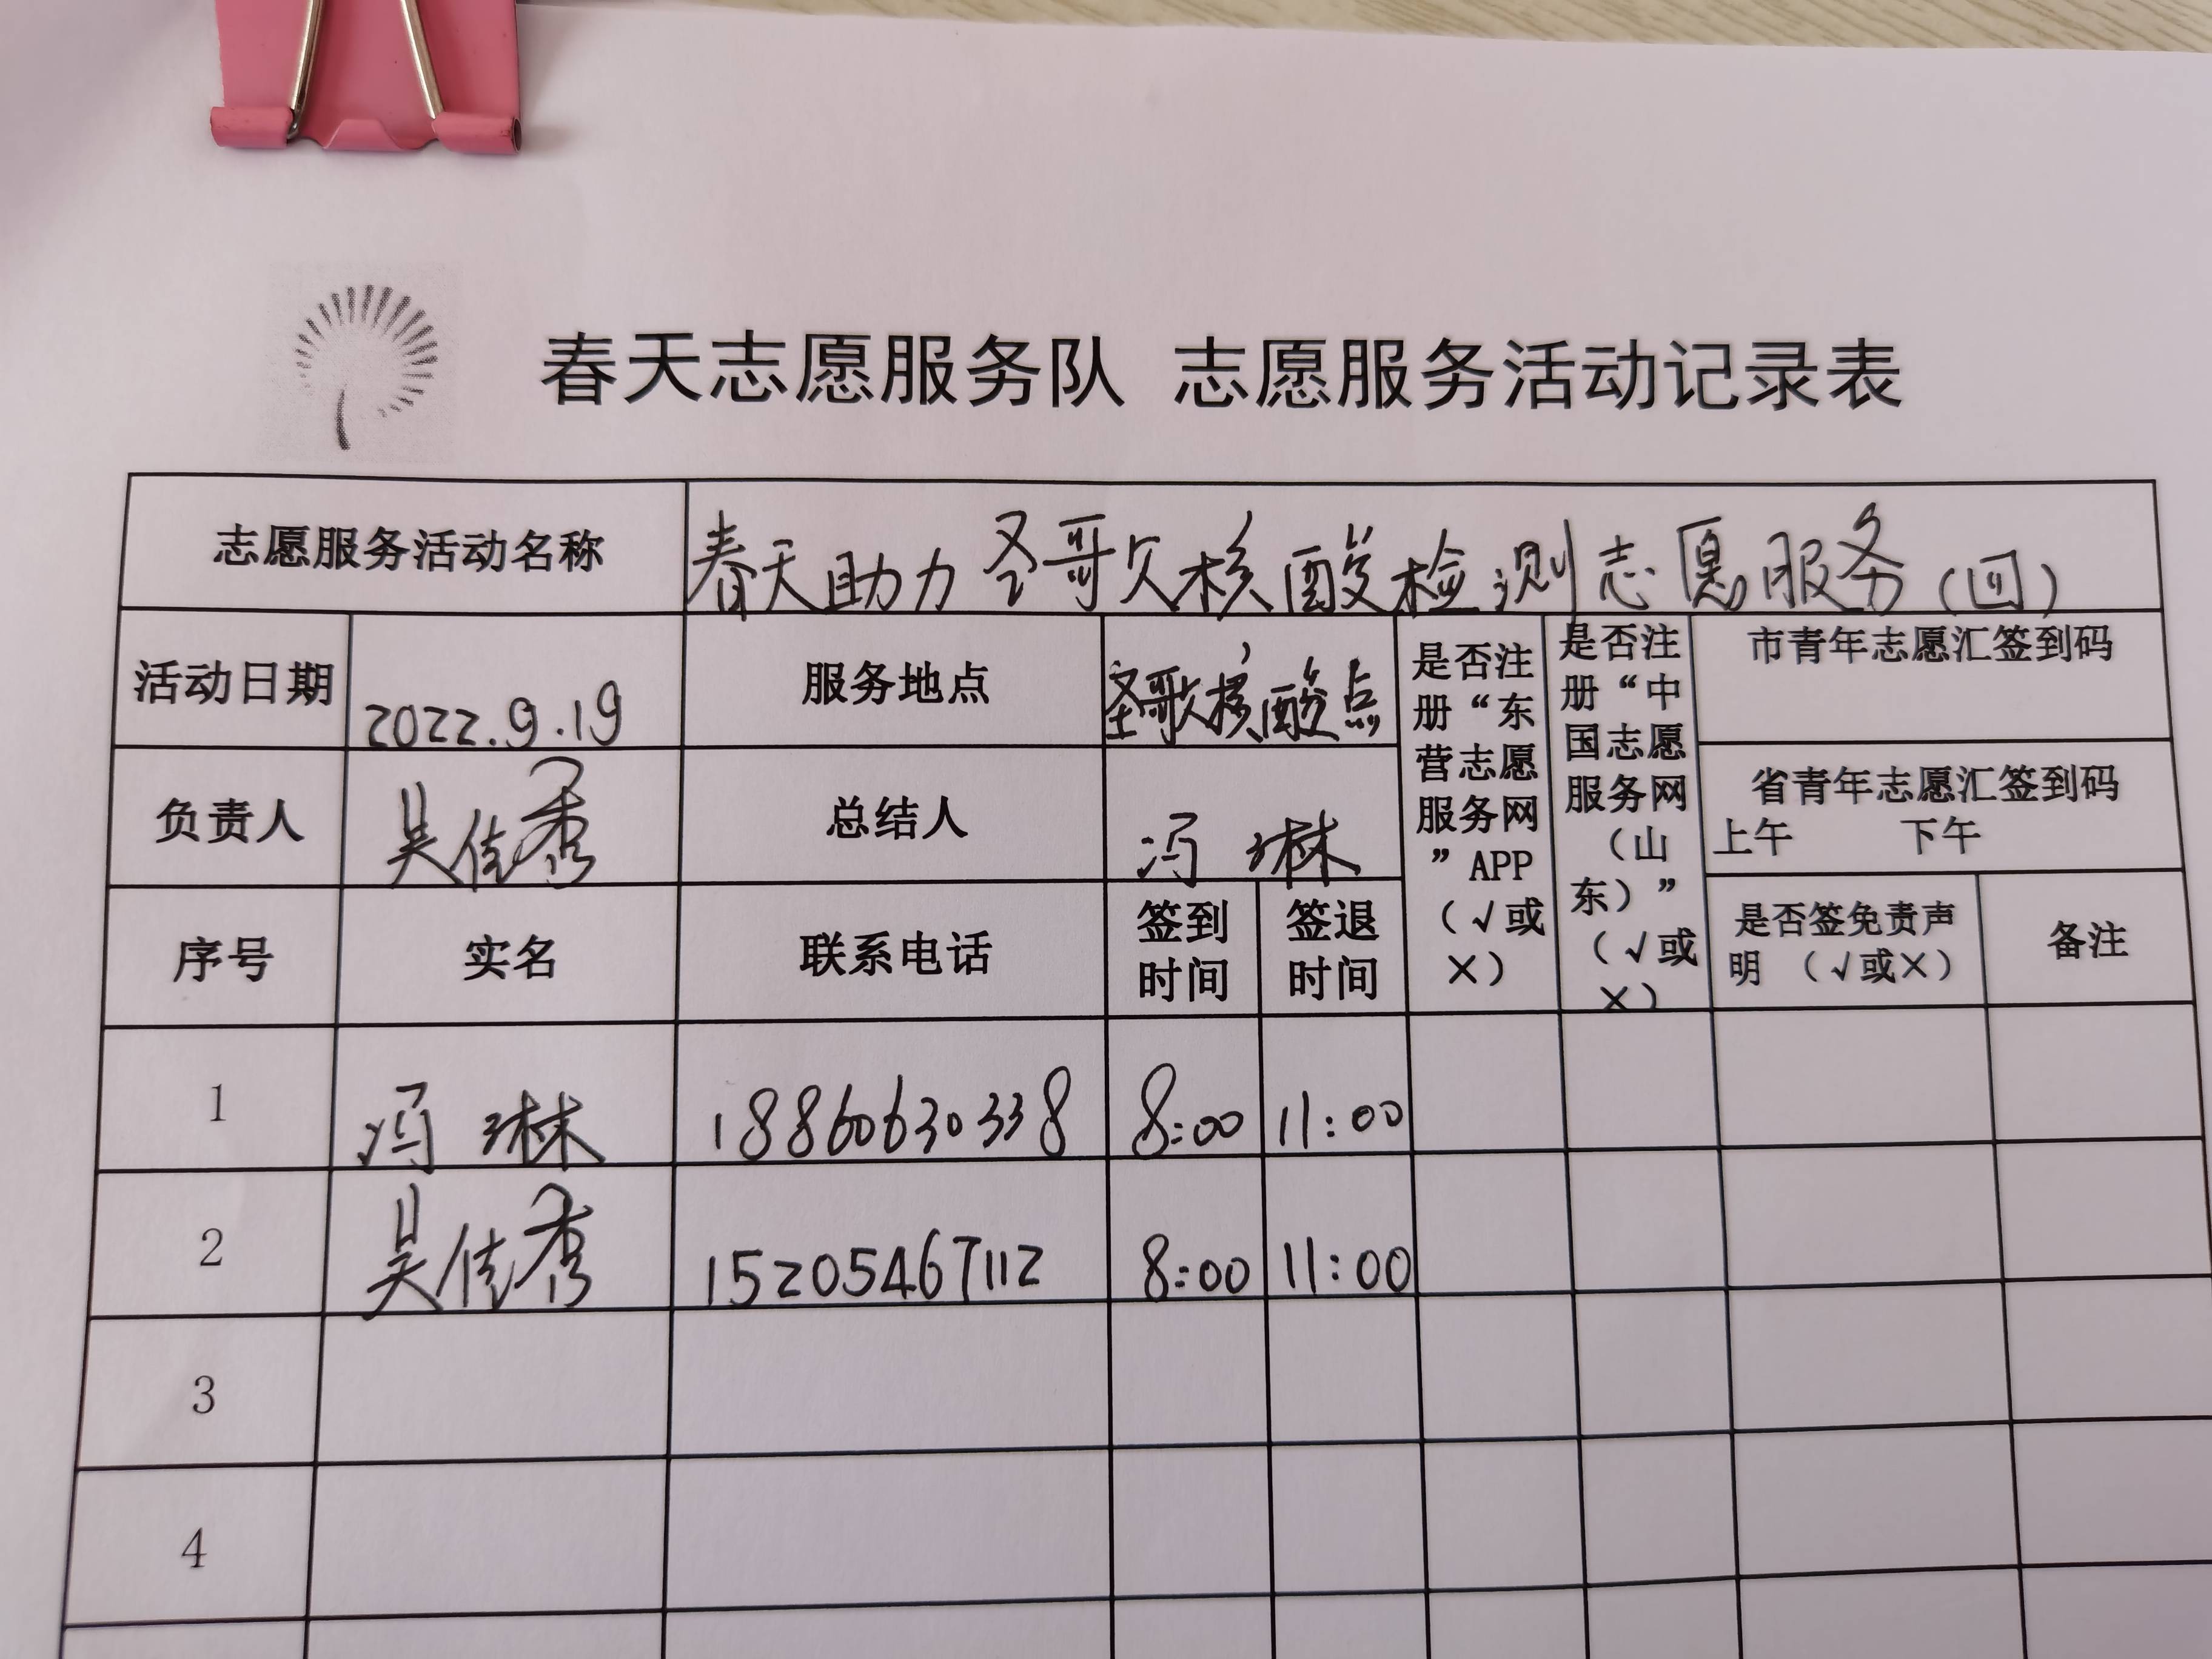 春天志愿服务队 志愿服务活动记录表
志愿服务活动名称 春天助力圣哥欠核酸检测志愿服务(四)
活动日期 2022.9.19 服务地点 圣歌核酸点
是否注册“东营志愿服务网”APP（√或×）
是否注册“中国志愿服务网（山东）”（√或×）
市青年志愿汇签到码
负责人 吴佳秀 总结人 冯琳
省青年志愿汇签到码
上午 下午
序号 实名 联系电话 签到时间 签退时间 是否签免责声明（√或×） 备注
1 冯琳 18860630338 8:00 11:00
2 吴佳秀 15205467112 8:00 11:00
3
4